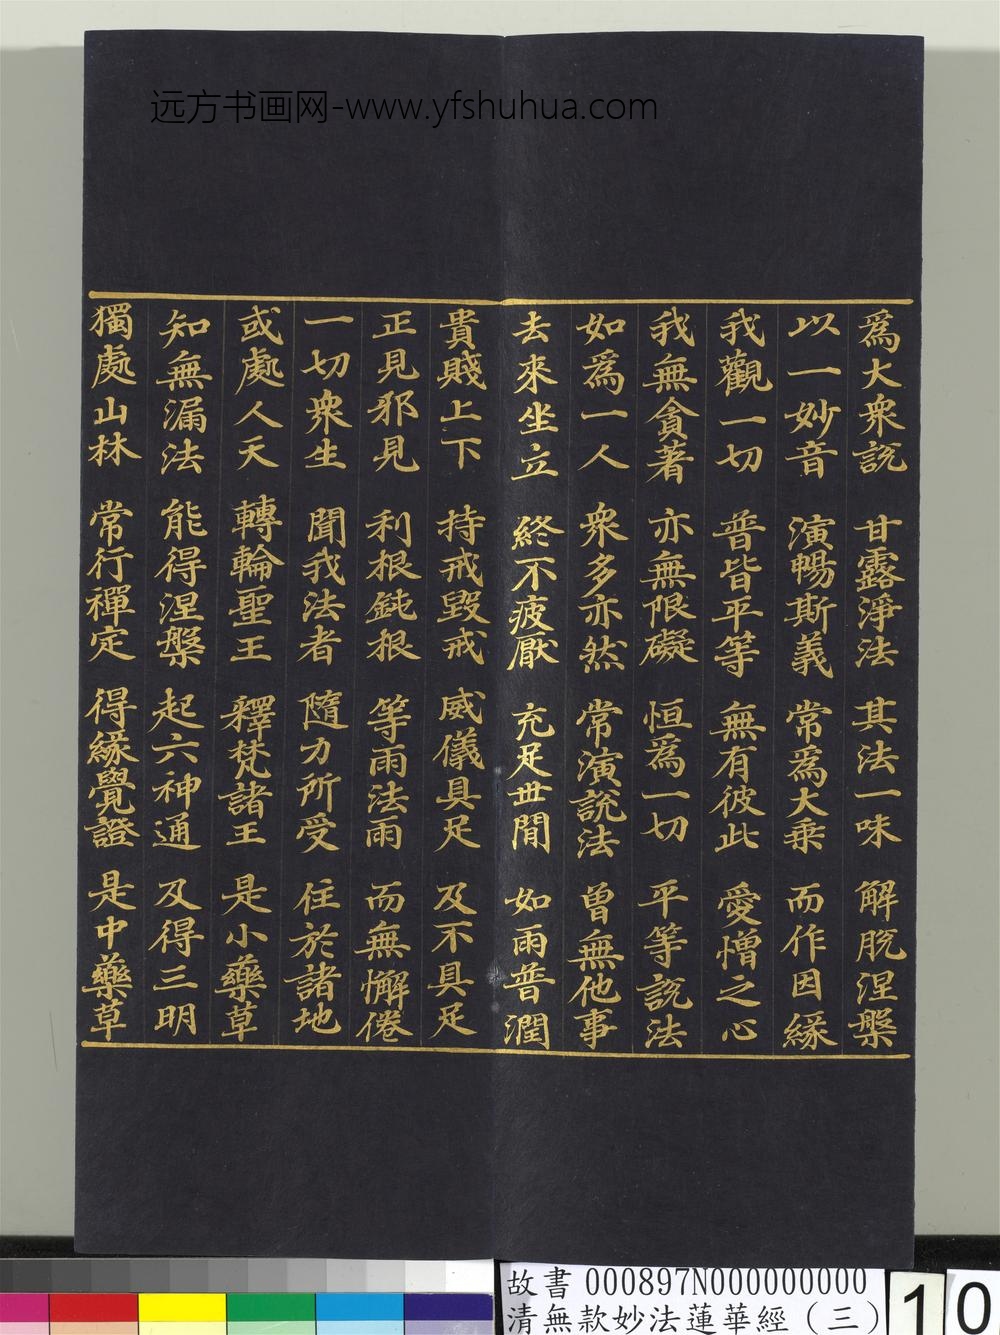 远方书画网-www.yfshuhua.com
為大衆說 甘露淨法 其法一味 解脫涅槃
以一妙音 演暢斯義 常為大乘 而作因緣
我觀一切 普皆平等 無有彼此 愛憎之心
我無貪著 亦無限礙 恒為一切 平等說法
如為一人 衆多亦然 常演說法 曾無他事
去來坐立 終不疲厭 充足世間 如雨普潤
貴賤上下 持戒毀戒 威儀具足 及不具足
正見邪見 利根鈍根 等雨法雨 而無懈倦
一切衆生 聞我法者 隨力所受 住於諸地
或處人天 轉輪聖王 釋梵諸王 是小藥草
知無漏法 能得涅槃 起六神通 及得三明
獨處山林 常行禪定 得緣覺證 是中藥草
故書 000897N000000000
清無款妙法蓮華經（三）
10